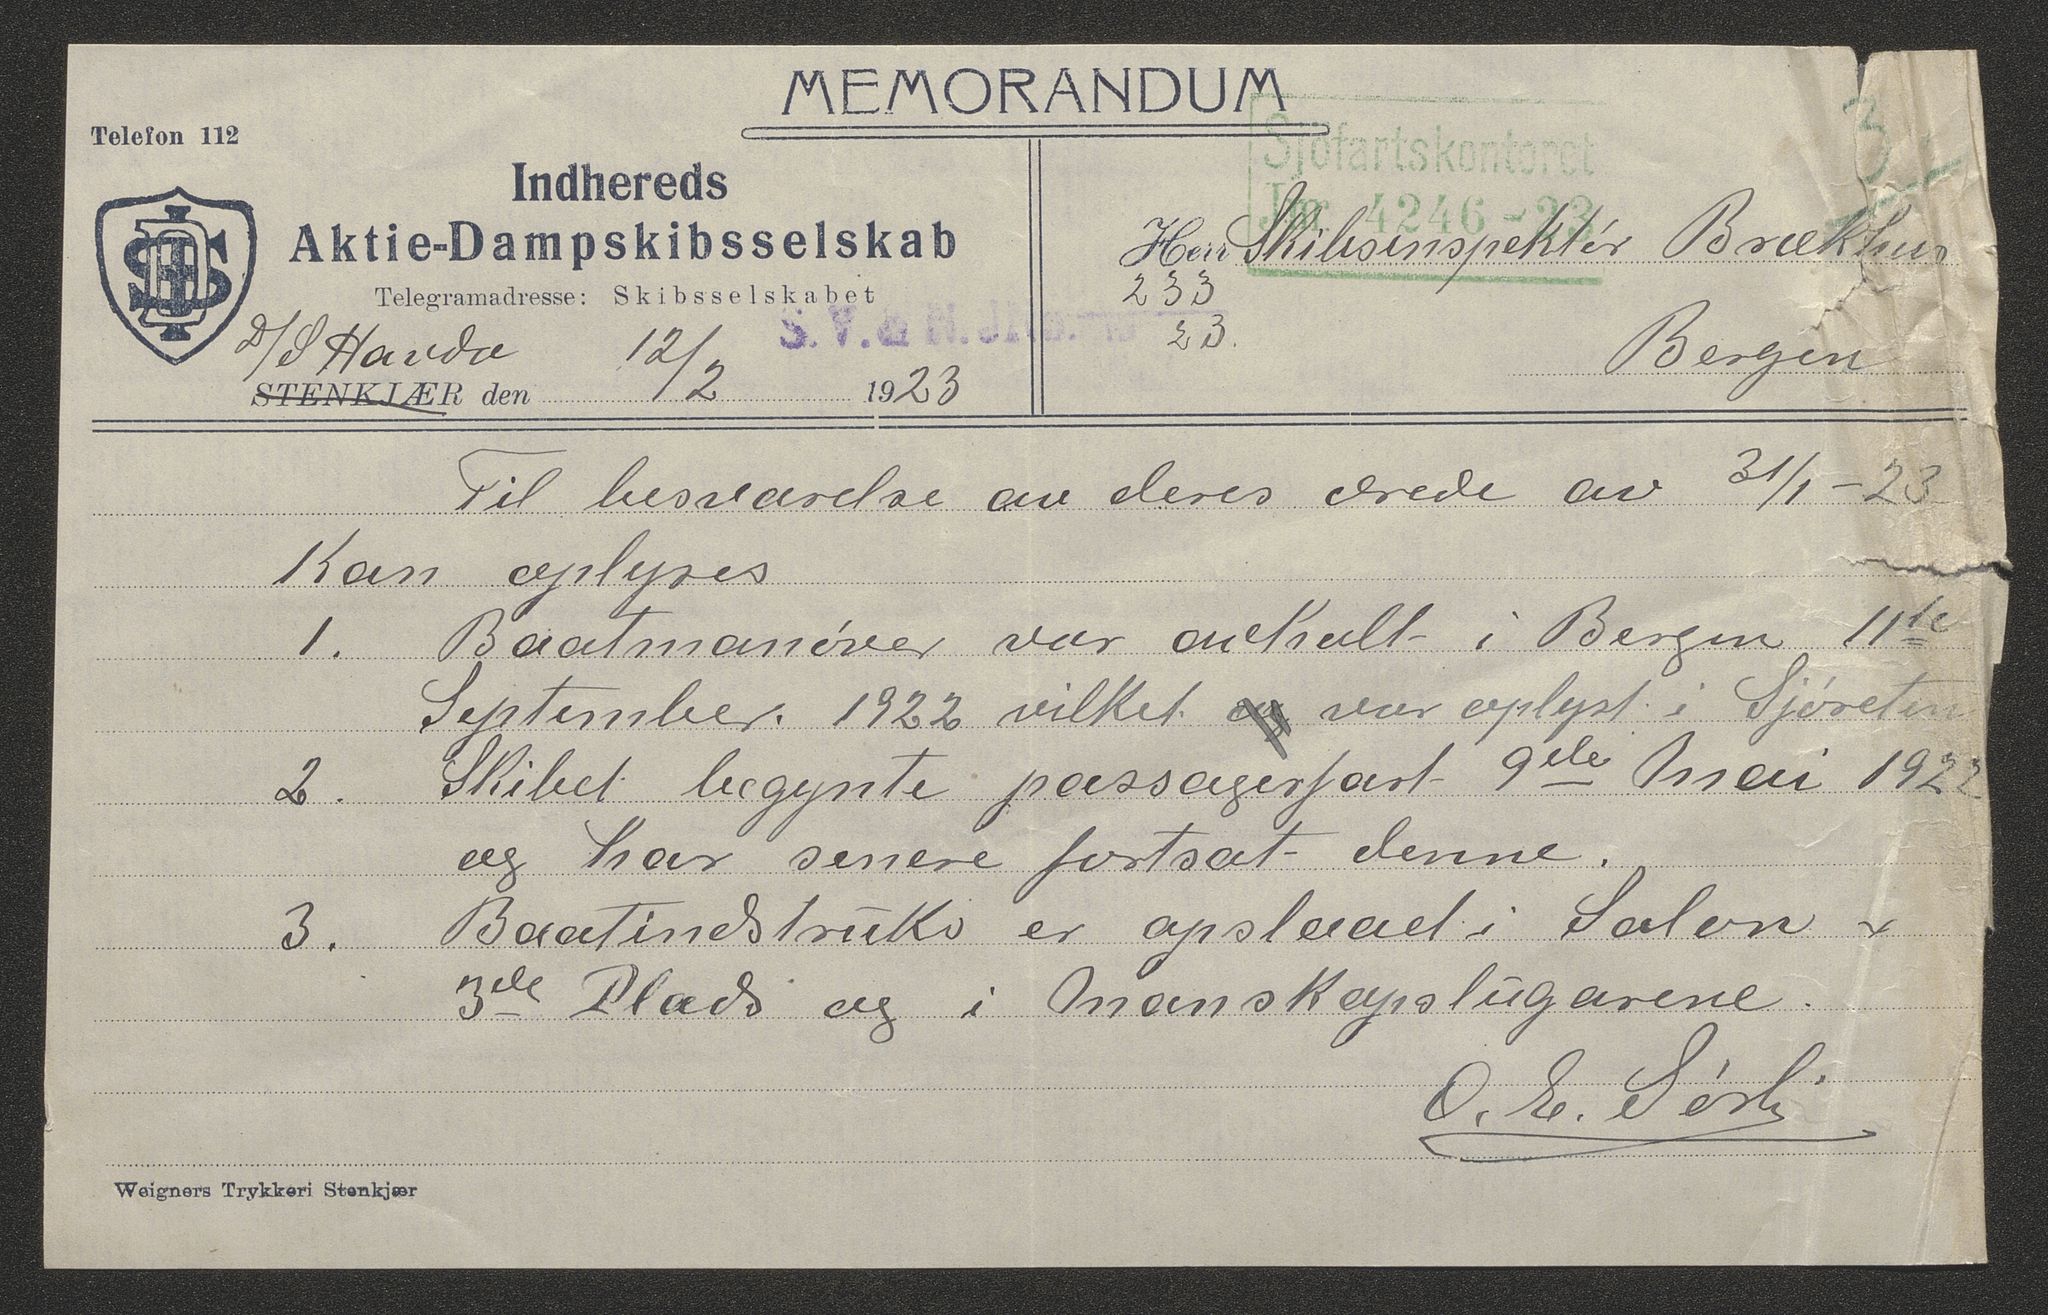 MEMORANDUM
Telefon 112
Indhereds
Aktie-Dampskibsselskab
Telegramadresse: Skibsselskabet
D/S Havda 12/2 1923
STENKJÆR den
S. V. & N. JNo.
233
23.
Sjöfartskontoret
Jnr. 4246-23
3
Herr Skibsinspektör Brækhus
Bergen
Til besvarelse av deres ærede av 31/1-23
Kan oplyses
1. Baatmanöver var avholt i Bergen 11te
September. 1922 vilket og var oplyst i Sjöreten
2. Skibet begynte passagerfart 9de Mai 1922
og har senere fortsat denne.
3. Baatindstruks er opslaad i Salon &
3de Plads og i Manskapslugarene.
O. E. Sörli
Weigners Trykkeri Stenkjær